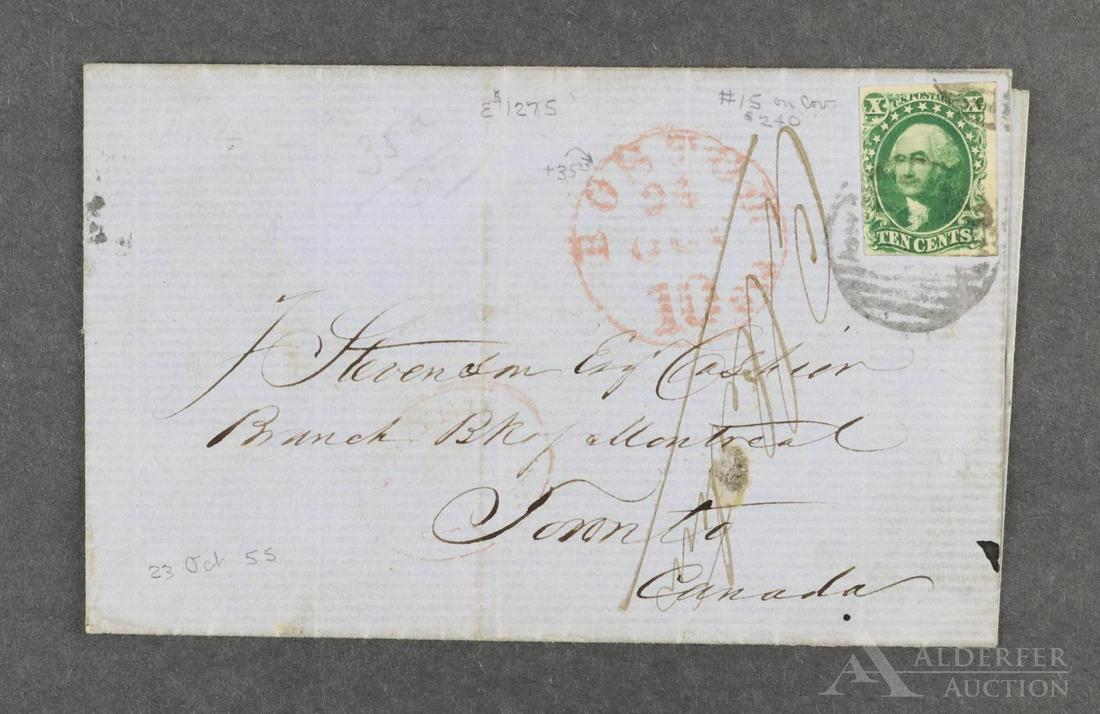 E 1275
#15 on Cov.
$240
+35
X U.S. POSTAGE X
TEN CENTS
BOSTON
24
OCT
10
J Stevenson Esq Cashier
Branch Bk of Montreal
Toronto
Canada
23 Oct 55
ALDERFER
AUCTION